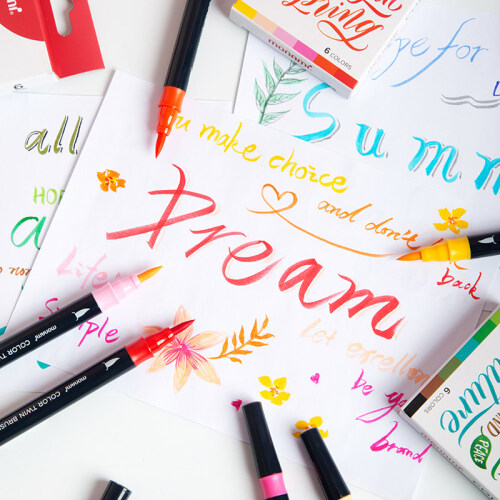 monami
6 COLORS
pe for
Summ
all
HO
u make choice
and don't
back
Dream
Life
Simple
Lot excellen
be yo
brand
monami COLOR TWIN BRUSH
monami COLOR TWIN BRUS
6 COLORS
ature
AND
PEACE